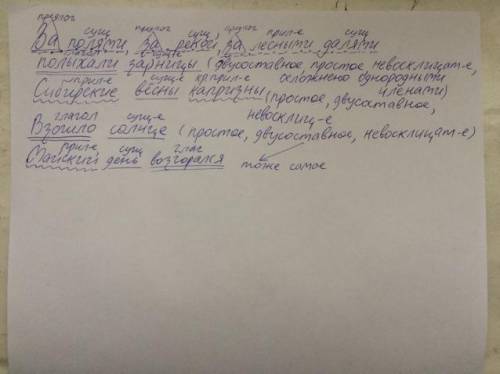 предлог сущ предлог сущ, предлог прил-е сущ
За полями, за рекой, за лесными далями
полыхали зарницы (двусоставное простое невосклицат-е,
прил-е сущ-е кр прил-е осложнено однородными
Сибирские вёсны капризны (простое, двусоставное, членами)
глагол сущ-е невосклиц-е
Взошло солнце (простое, двусоставное, невосклицат-е)
прил-е сущ глаг
Майский день возгорался тоже самое